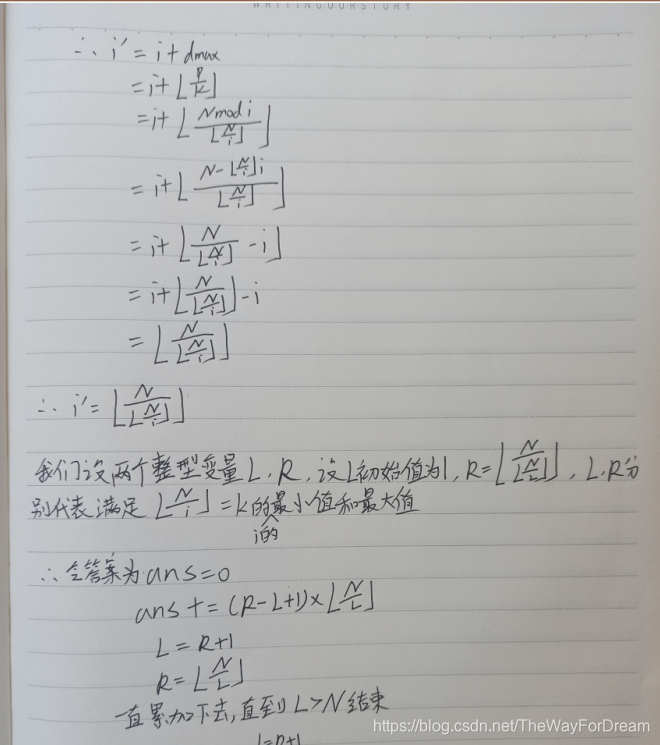 WRITINGOURSTORY
∴ i′ = i + dmax
= i + ⌊P/K⌋
= i + ⌊(N mod i)/⌊N/i⌋⌋
= i + ⌊(N - ⌊N/i⌋i)/⌊N/i⌋⌋
= i + ⌊N/⌊N/i⌋ - i⌋
= i + ⌊N/⌊N/i⌋⌋ - i
= ⌊N/⌊N/i⌋⌋
∴ i′ = ⌊N/⌊N/i⌋⌋
我们设两个整型变量 L, R, 设L初始值为1, R = ⌊N/⌊N/L⌋⌋, L, R分
别代表满足 ⌊N/i⌋ = k 的i的最小值和最大值
∴ 令答案为 ans = 0
ans += (R-L+1)×⌊N/L⌋
L = R+1
R = ⌊N/L⌋
一直累加下去, 直到 L > N 结束
L=R+1
https://blog.csdn.net/TheWayForDream